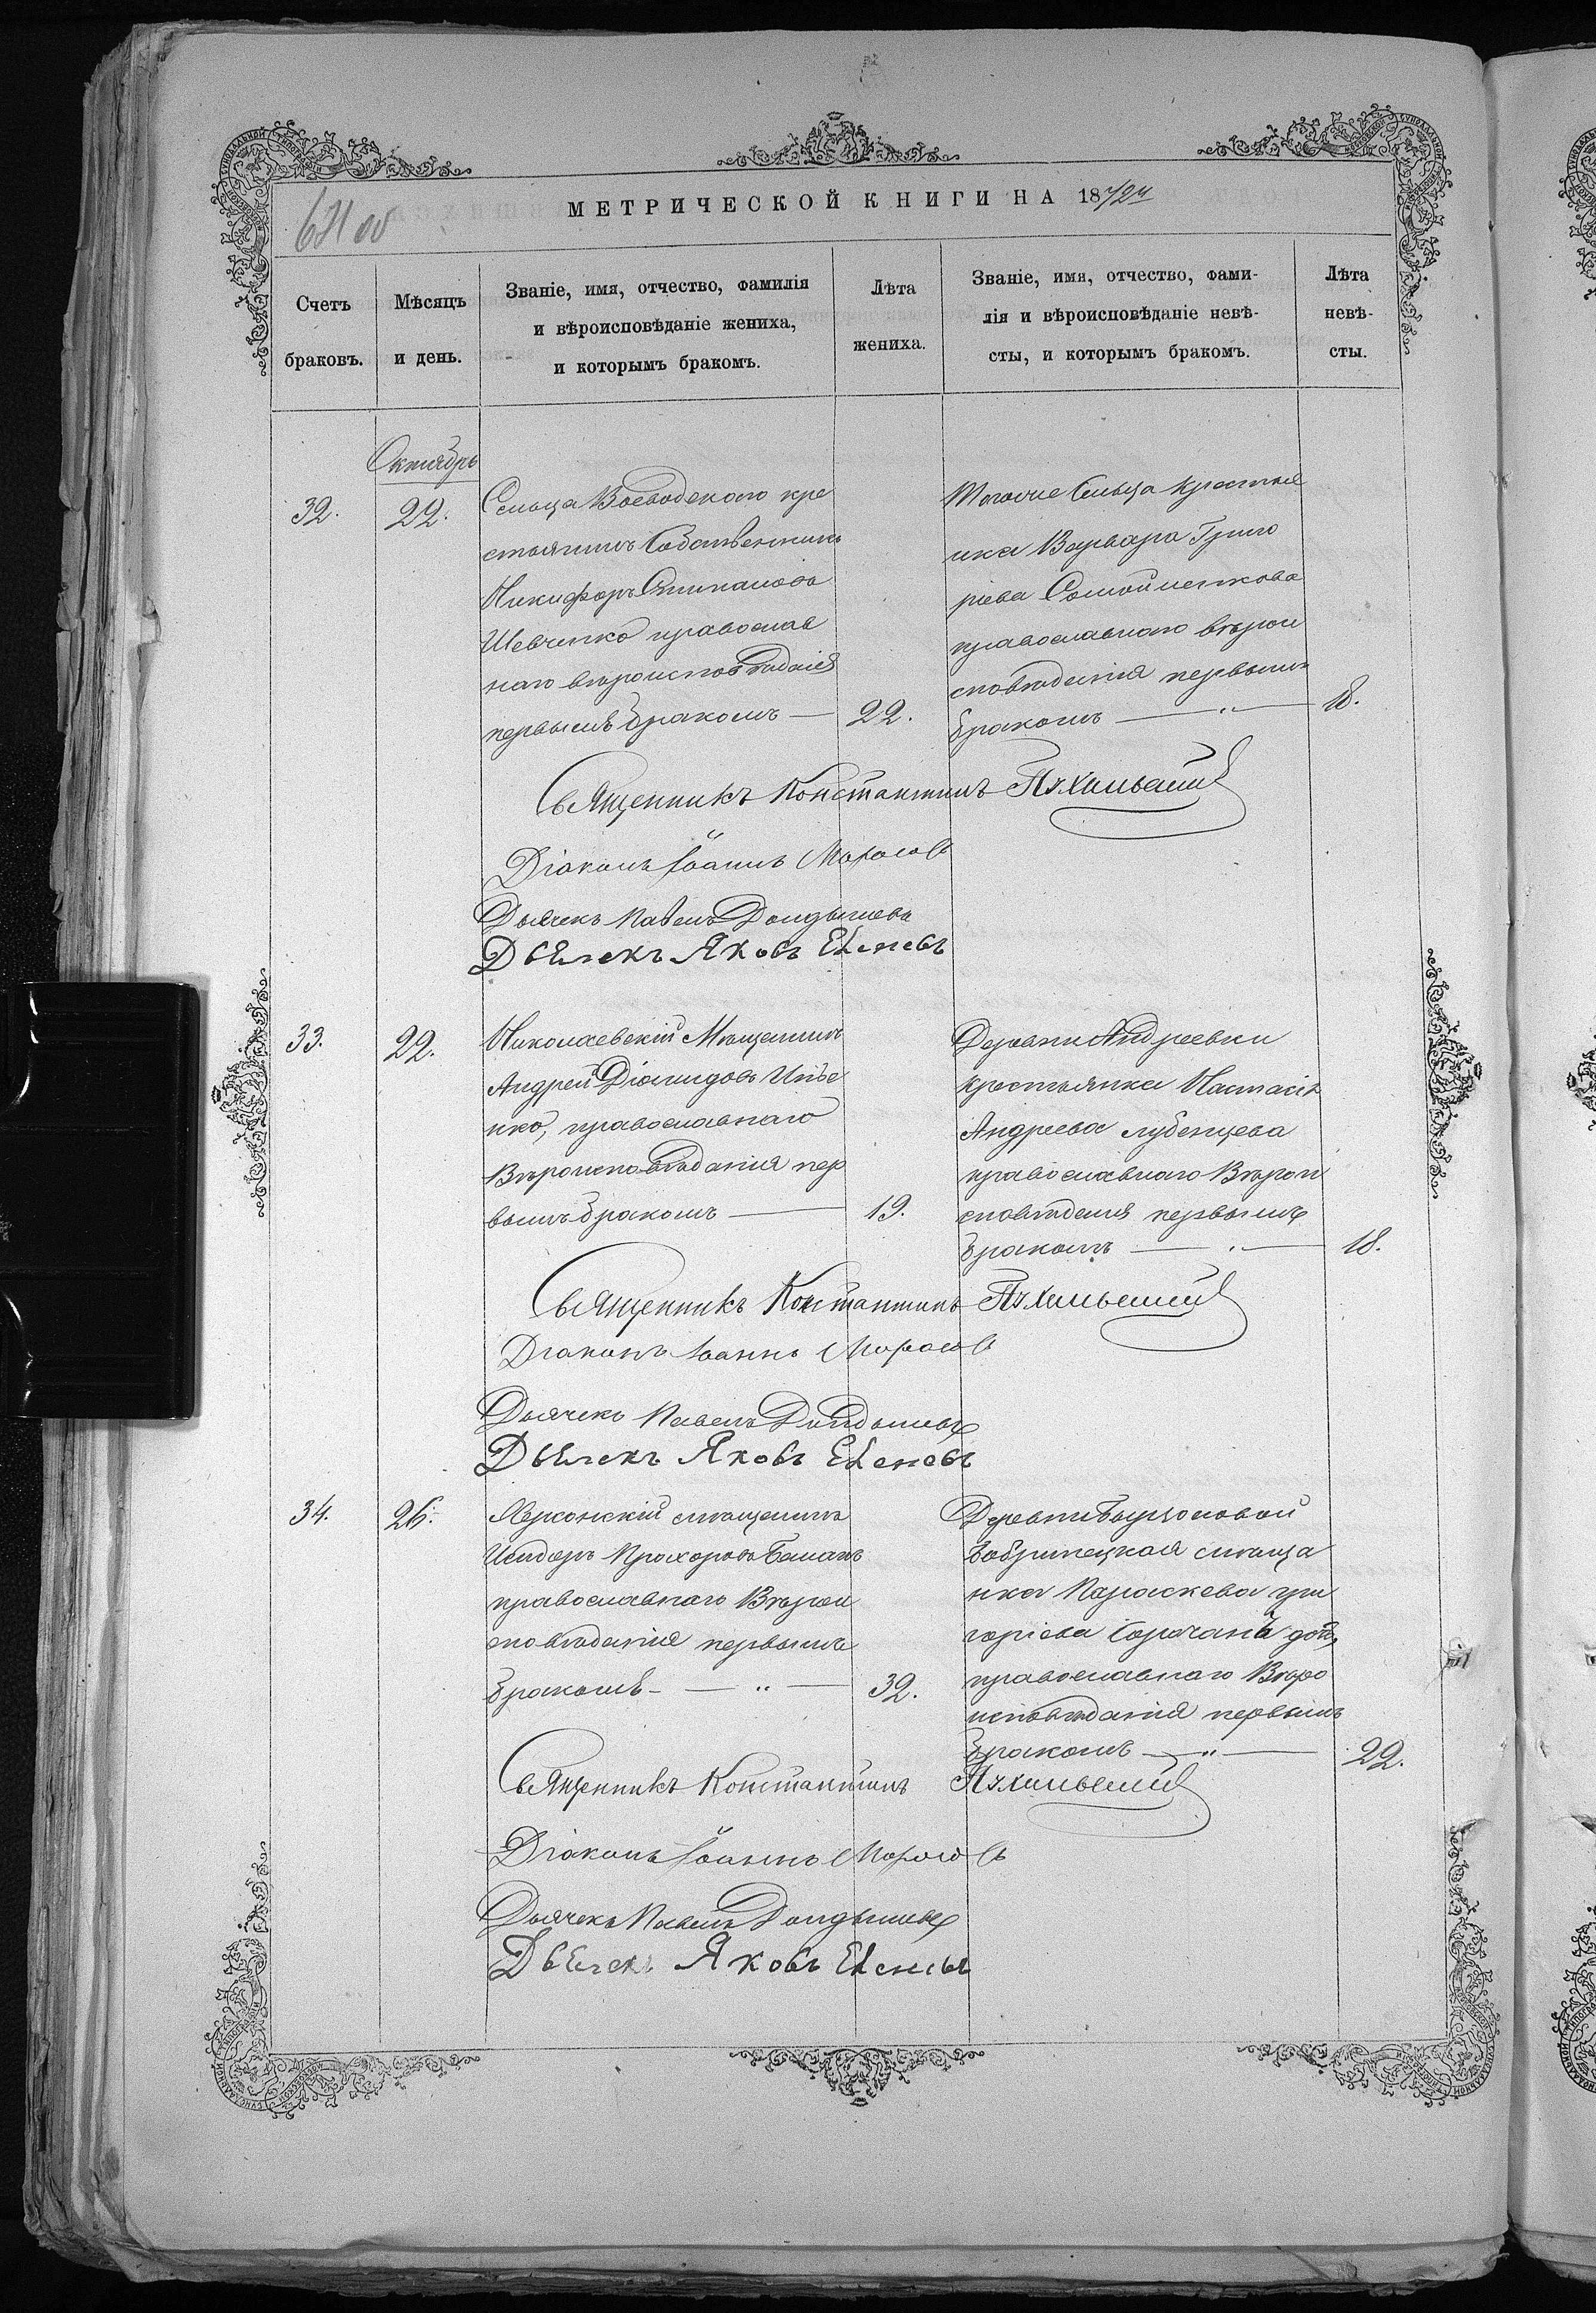 МЕТРИЧЕСКОЙ КНИГИ НА 1872й
671 об
Счетъ браковъ.
Мѣсяцъ и день.
Званіе, имя, отчество, фамилія
и вѣроисповѣданіе жениха,
и которымъ бракомъ.
Лѣта
жениха.
Званіе, имя, отчество, фами-
лія и вѣроисповѣданіе невѣ-
сты, и которымъ бракомъ.
Лѣта
невѣ-
сты.
Октябрь
32.
22.
Сельца Воеводскаго кре
стьянинъ Собственникъ
Никифоръ Степановъ
Шевченко православ
наго вѣроисповѣданія
первымъ бракомъ —
22.
Тогоже Сельца крестья
нка Варвара Григо
ріева
православнаго вѣрои
сповѣданія первымъ
бракомъ — " —
18.
Священникъ Константинъ
Діаконъ Іоаннъ Морозовъ
Дьячекъ Павелъ
Дьячекъ Яковъ
33.
22.
Николаевскій Мѣщанинъ
Андрей Діомидовъ
нко, православнаго
Вѣроисповѣданія пер
вымъ бракомъ —
19.
Деревни Андреевки
крестьянка Настасія
Андреева Лубенцева
православнаго Вѣрои
сповѣданія первымъ
бракомъ — " —
18.
Священникъ Константинъ
Діаконъ Іоаннъ Морозовъ
Дьячекъ Павелъ
Дьячекъ Яковъ
34.
26.
Херсонскій мѣщанинъ
Исидоръ Прохоровъ
православнаго Вѣрои
сповѣданія первымъ
бракомъ — " —
32.
Деревни
Бобринецкая мѣща
нка Параскева Гри
горіева
православнаго Вѣро
исповѣданія первымъ
бракомъ — " —
22.
Священникъ Константинъ
Діаконъ Іоаннъ Морозовъ
Дьячекъ Павелъ
Дьячекъ Яковъ